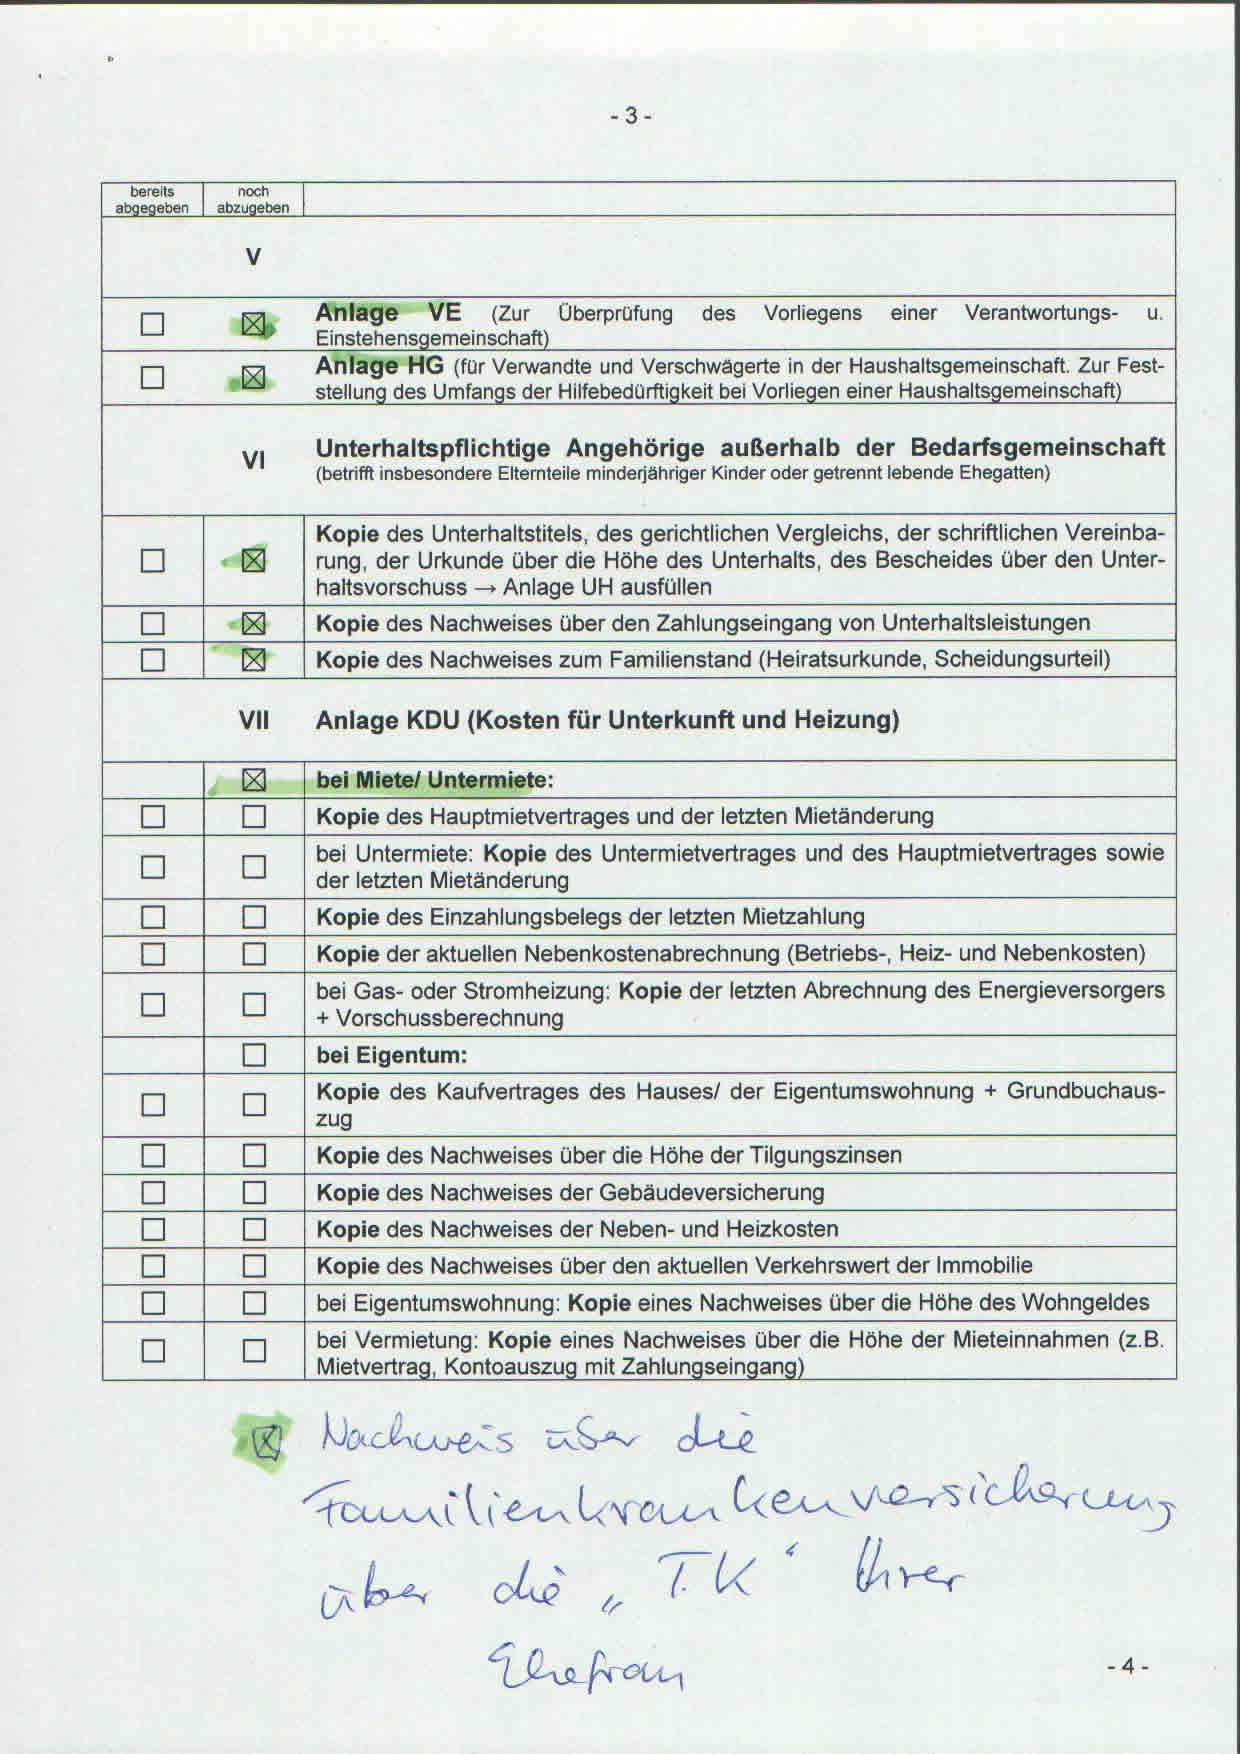 - 3 -
bereits
abgegeben
noch
abzugeben
V
☐ ☒ Anlage VE (Zur Überprüfung des Vorliegens einer Verantwortungs- u.
Einstehensgemeinschaft)
☐ ☒ Anlage HG (für Verwandte und Verschwägerte in der Haushaltsgemeinschaft. Zur Fest-
stellung des Umfangs der Hilfebedürftigkeit bei Vorliegen einer Haushaltsgemeinschaft)
VI Unterhaltspflichtige Angehörige außerhalb der Bedarfsgemeinschaft
(betrifft insbesondere Elternteile minderjähriger Kinder oder getrennt lebende Ehegatten)
☐ ☒ Kopie des Unterhaltstitels, des gerichtlichen Vergleichs, der schriftlichen Vereinba-
rung, der Urkunde über die Höhe des Unterhalts, des Bescheides über den Unter-
haltsvorschuss → Anlage UH ausfüllen
☐ ☒ Kopie des Nachweises über den Zahlungseingang von Unterhaltsleistungen
☐ ☒ Kopie des Nachweises zum Familienstand (Heiratsurkunde, Scheidungsurteil)
VII Anlage KDU (Kosten für Unterkunft und Heizung)
☒ bei Miete/ Untermiete:
☐ ☐ Kopie des Hauptmietvertrages und der letzten Mietänderung
☐ ☐ bei Untermiete: Kopie des Untermietvertrages und des Hauptmietvertrages sowie
der letzten Mietänderung
☐ ☐ Kopie des Einzahlungsbelegs der letzten Mietzahlung
☐ ☐ Kopie der aktuellen Nebenkostenabrechnung (Betriebs-, Heiz- und Nebenkosten)
☐ ☐ bei Gas- oder Stromheizung: Kopie der letzten Abrechnung des Energieversorgers
+ Vorschussberechnung
☐ bei Eigentum:
☐ ☐ Kopie des Kaufvertrages des Hauses/ der Eigentumswohnung + Grundbuchaus-
zug
☐ ☐ Kopie des Nachweises über die Höhe der Tilgungszinsen
☐ ☐ Kopie des Nachweises der Gebäudeversicherung
☐ ☐ Kopie des Nachweises der Neben- und Heizkosten
☐ ☐ Kopie des Nachweises über den aktuellen Verkehrswert der Immobilie
☐ ☐ bei Eigentumswohnung: Kopie eines Nachweises über die Höhe des Wohngeldes
☐ ☐ bei Vermietung: Kopie eines Nachweises über die Höhe der Mieteinnahmen (z.B.
Mietvertrag, Kontoauszug mit Zahlungseingang)
☒ Nachweis über die
Familienkrankenversicherung
über die „T.K“ Ihrer
Ehefrau
- 4 -